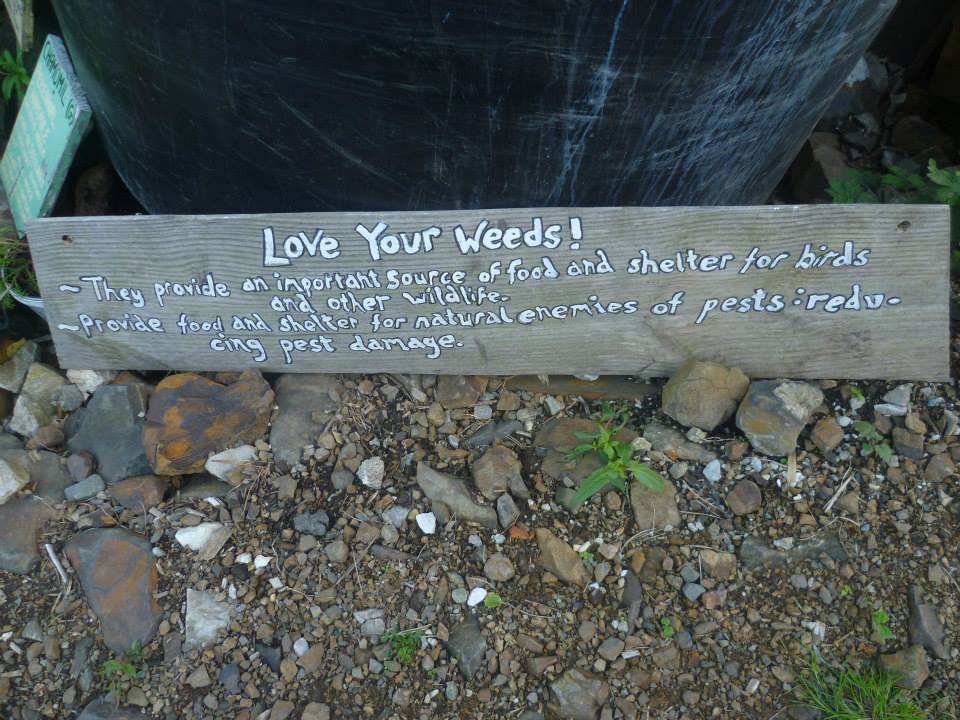 CHAMOMIL
Love Your Weeds!
~ They provide an important source of food and shelter for birds
and other wildlife.
~ Provide food and shelter for natural enemies of pests : redu-
cing pest damage.